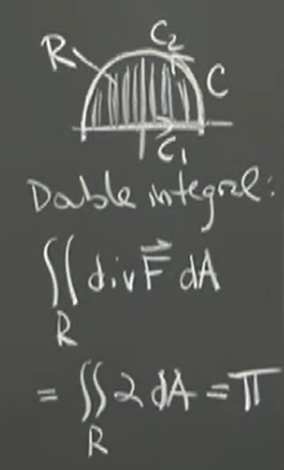 R
C₂
C
C₁
Dable integral:
∬ div F⃗ dA
R
= ∬ 2 dA = π
R